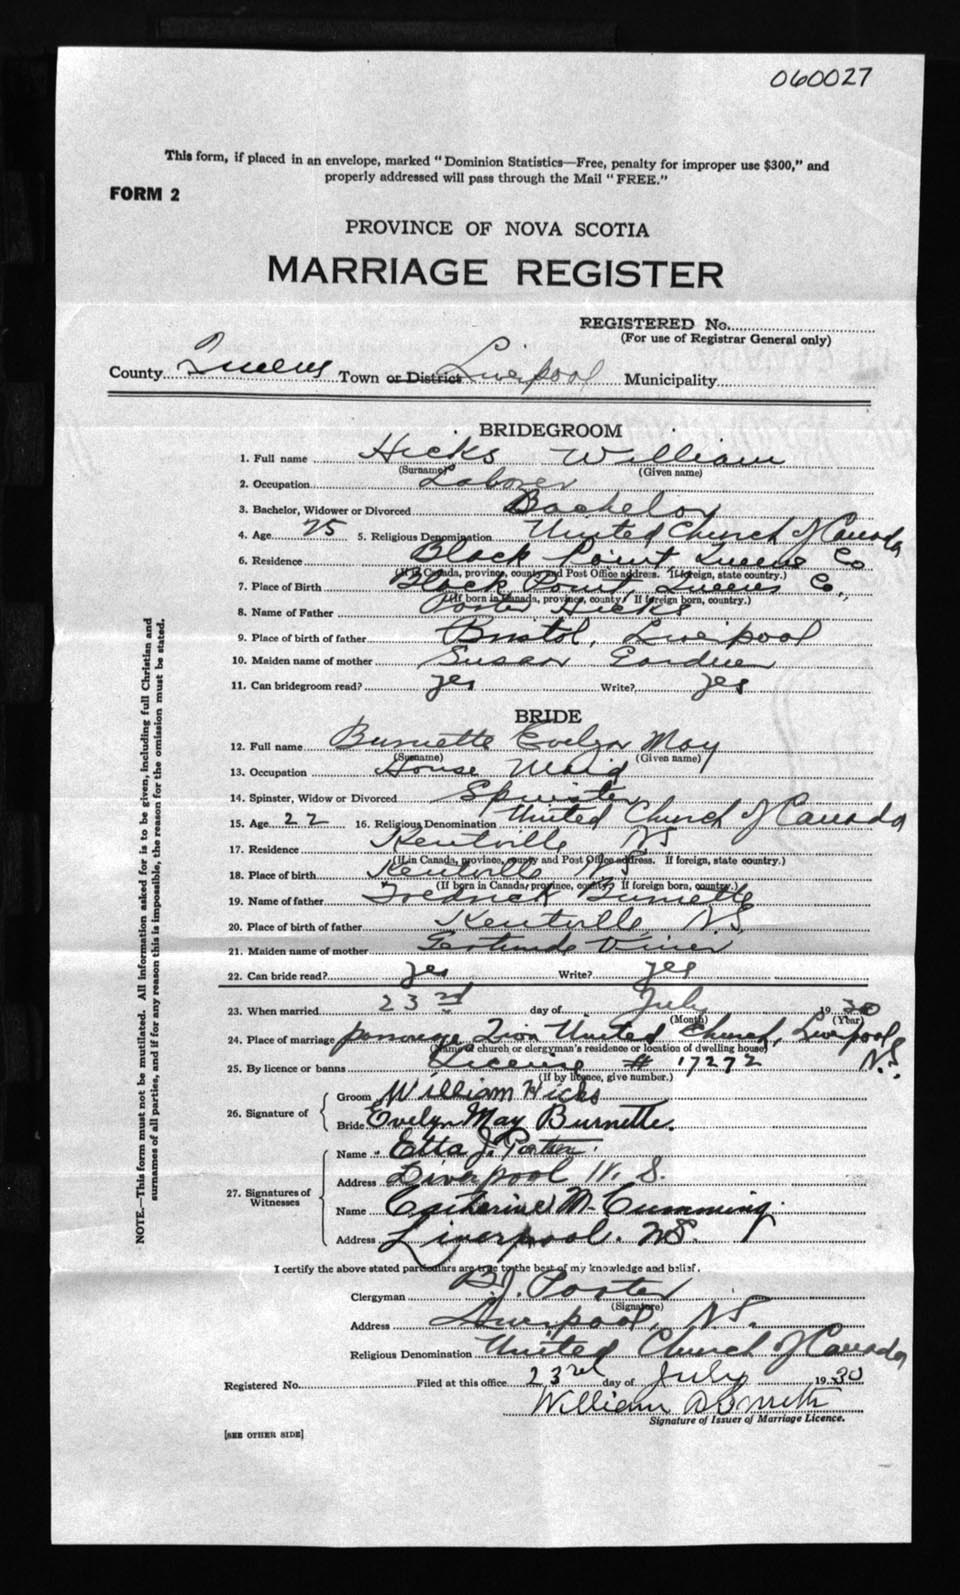 060027
This form, if placed in an envelope, marked "Dominion Statistics—Free, penalty for improper use $300," and
properly addressed will pass through the Mail "FREE."
FORM 2
PROVINCE OF NOVA SCOTIA
MARRIAGE REGISTER
REGISTERED No.
(For use of Registrar General only)
County Queens Town or District Liverpool Municipality
BRIDEGROOM
1. Full name Hicks William
(Surname) (Given name)
2. Occupation Laborer
3. Bachelor, Widower or Divorced Bachelor
4. Age 25 5. Religious Denomination United Church of Canada
6. Residence Black Point, Queens Co
(If in Canada, province, county and Post Office address. If foreign, state country.)
7. Place of Birth Black Point, Queens Co.,
(If born in Canada, province, county. If foreign born, country.)
8. Name of Father Hicks
9. Place of birth of father Bristol, Liverpool
10. Maiden name of mother Susan Gardner
11. Can bridegroom read? yes Write? yes
BRIDE
12. Full name Burnette Evelyn May
(Surname) (Given name)
13. Occupation House Maid
14. Spinster, Widow or Divorced Spinster
15. Age 22 16. Religious Denomination United Church of Canada
17. Residence Kentville NS
(If in Canada, province, county and Post Office address. If foreign, state country.)
18. Place of birth Kentville NS
(If born in Canada, province, county. If foreign born, country.)
19. Name of father Fredrick Burnette
20. Place of birth of father Kentville N.S.
21. Maiden name of mother Gertrude
22. Can bride read? yes Write? yes
23. When married 23rd day of July 1930
(Month) (Year)
24. Place of marriage parsonage Zion United Church, Liverpool N.S.
(Name of church or clergyman's residence or location of dwelling house)
25. By licence or banns License # 17272
(If by licence, give number.)
26. Signature of Groom William Hicks
Bride Evelyn May Burnette.
27. Signatures of Witnesses
Name Etta J. Porter.
Address Liverpool N. S.
Name Catherine M. Cumming
Address Liverpool. NS.
I certify the above stated particulars are true to the best of my knowledge and belief.
Clergyman B.J. Porter
(Signature)
Address Liverpool, N.S.
Religious Denomination United Church of Canada
Registered No. Filed at this office 23rd day of July 1930
William
Signature of Issuer of Marriage Licence.
[SEE OTHER SIDE]
NOTE.—This form must not be mutilated. All information asked for is to be given, including full Christian and
surnames of all parties, and if for any reason this is impossible, the reason for the omission must be stated.